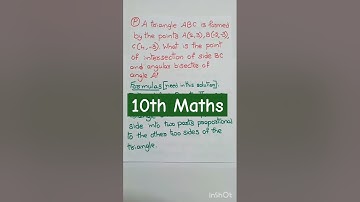 (P) A triangle ABC is formed
by the points A(2,3), B(-2,-3),
C(4,-3). What is the point
of intersection of side BC
and angular bisector of
angle A?
Formulas [used in this solution]
10th Maths
side into two parts proportional
to the other two sides of the
triangle.
InShOt